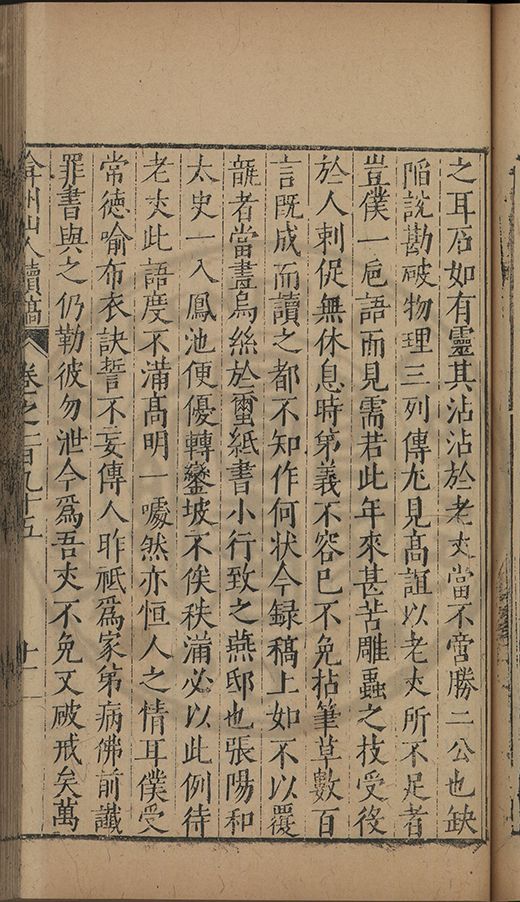 之耳石如有靈其沾沾於老丈當不啻勝二公也缺
陷説勘破物理三列傳尤見高誼以老丈所不足者
豈僕一巵語而見需若此年來甚苦雕蟲之技受役
於人刺促無休息時第義不容已不免拈筆草數百
言既成而讀之都不知作何狀今録稿上如不以覆
瓿者當畫烏絲於蠒紙書小行致之燕邸也張陽和
太史一入鳳池便優轉鑾坡不俟秩滿必以此例待
老丈此語度不滿高明一噱然亦恒人之情耳僕受
常德喻布衣訣誓不妄傳人昨祗爲家弟病佛前讖
罪書與之仍勒彼勿泄今爲吾丈不免又破戒矣萬
弇州山人續稿 卷之一百九十五 十一